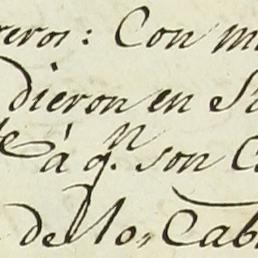 reros: Con m
dieron en S
á qn. son C
de los Cab